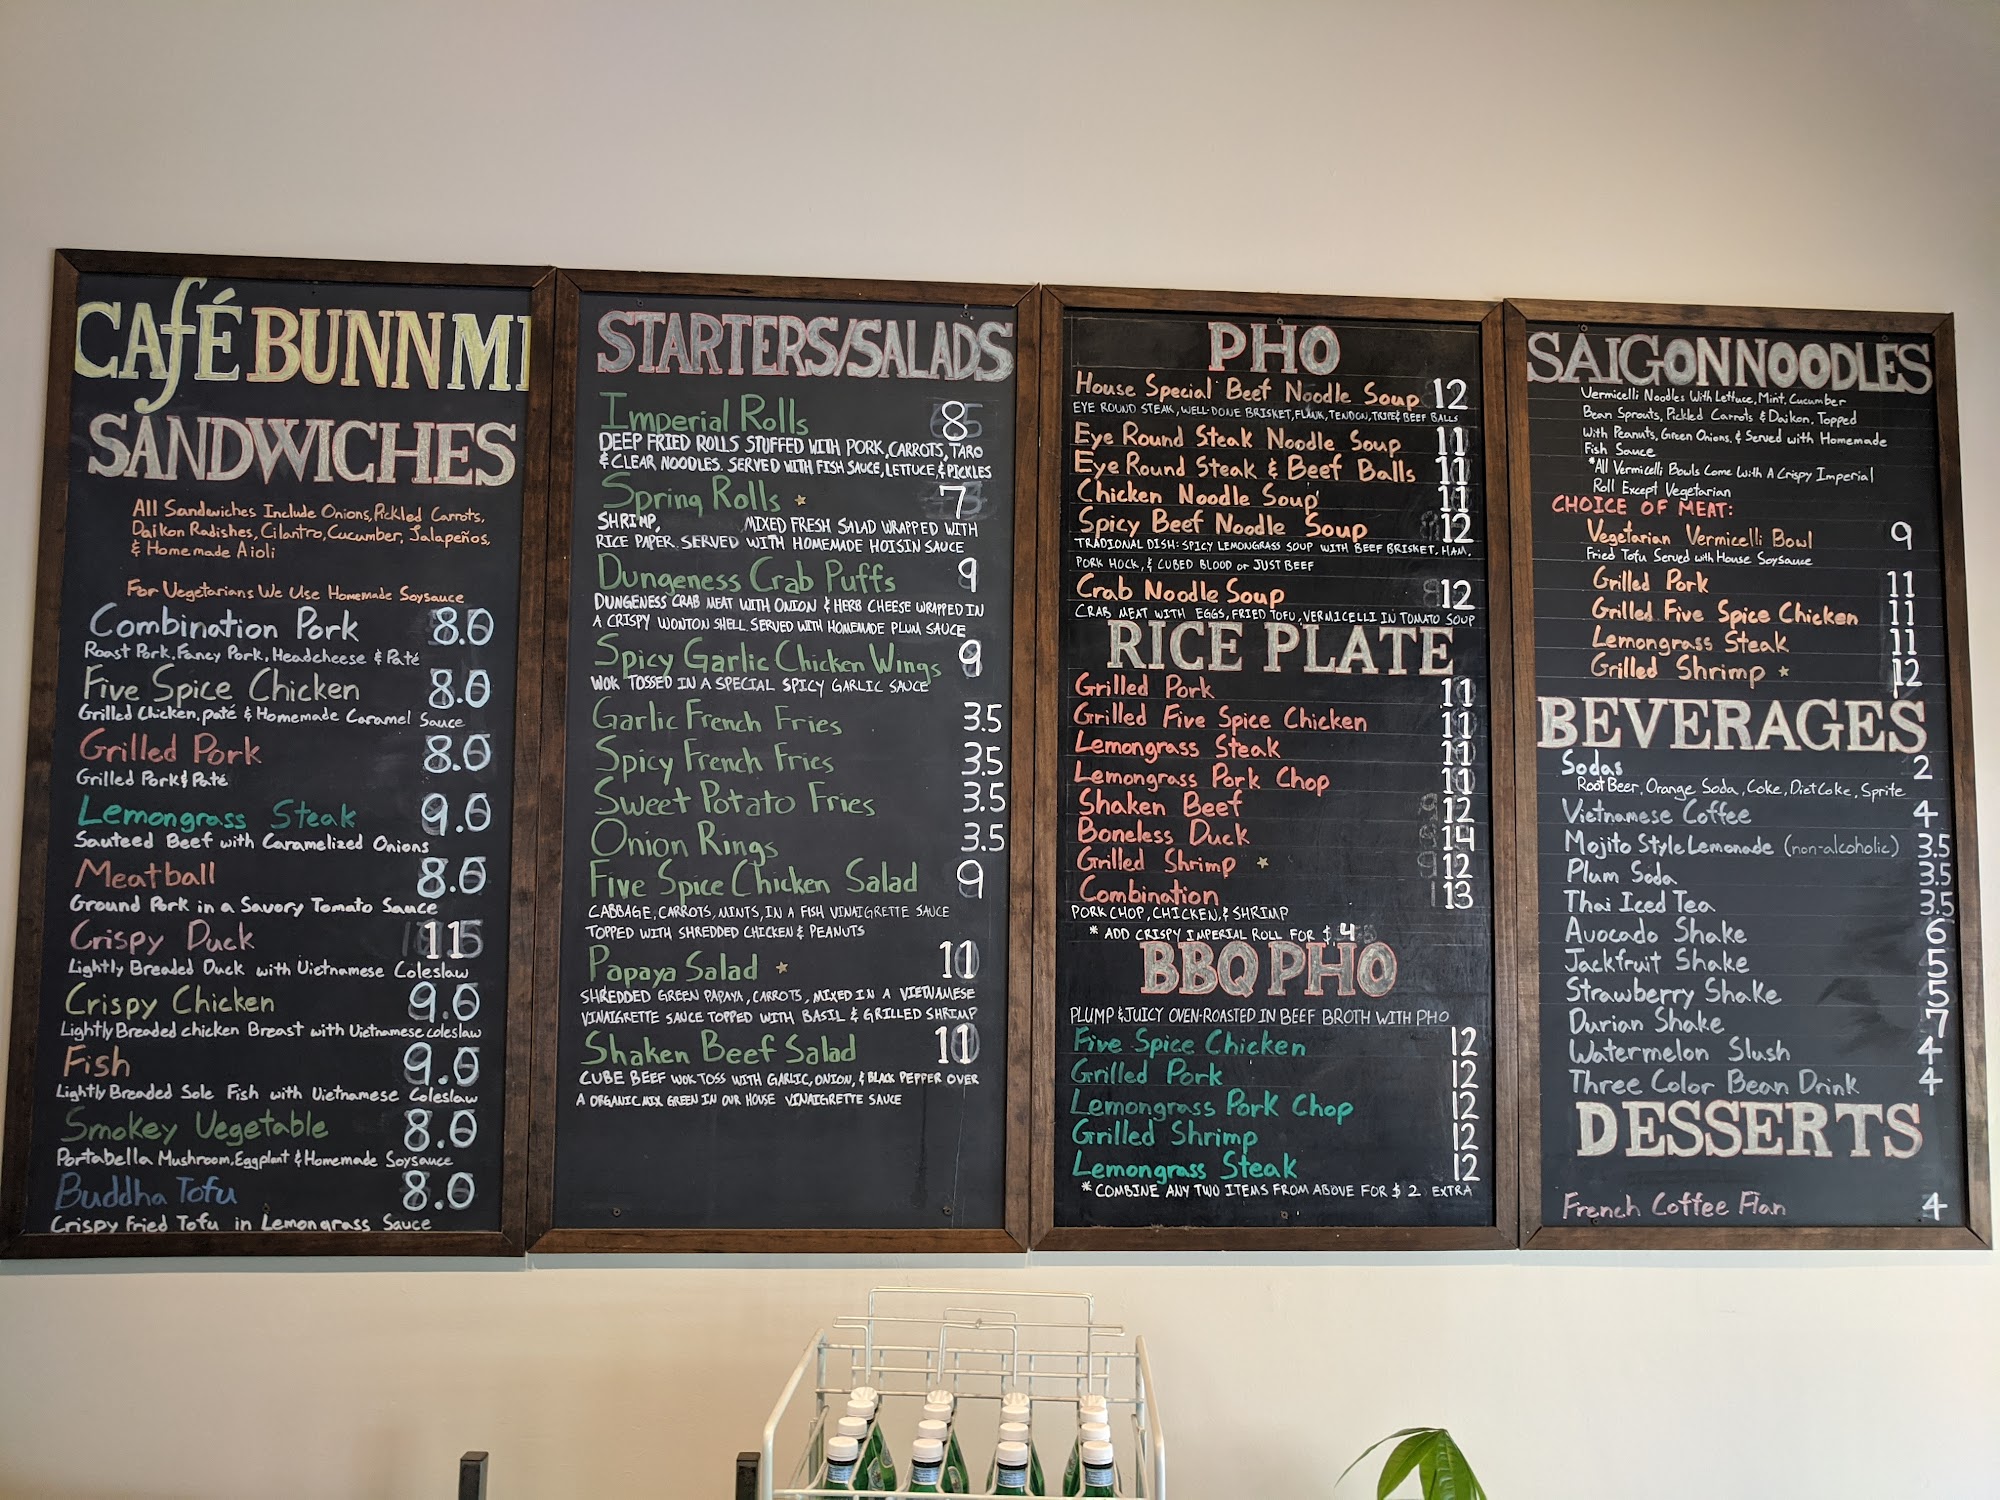 CAFÉ BUNN MI
SANDWICHES
All Sandwiches Include Onions, Pickled Carrots,
Daikon Radishes, Cilantro, Cucumber, Jalapeños,
& Homemade Aioli
For Vegetarians We Use Homemade Soysauce
Combination Pork 8.0
Roast Pork, Fancy Pork, Headcheese & Paté
Five Spice Chicken 8.0
Grilled Chicken, paté & Homemade Caramel Sauce
Grilled Pork 8.0
Grilled Pork & Paté
Lemongrass Steak 9.0
Sauteed Beef with Caramelized Onions
Meatball 8.0
Ground Pork in a Savory Tomato Sauce
Crispy Duck 11
Lightly Breaded Duck with Vietnamese Coleslaw
Crispy Chicken 9.0
Lightly Breaded chicken Breast with Vietnamese coleslaw
Fish 9.0
Lightly Breaded Sole Fish with Vietnamese Coleslaw
Smokey Vegetable 8.0
Portabella Mushroom, Eggplant & Homemade Soysauce
Buddha Tofu 8.0
Crispy Fried Tofu in Lemongrass Sauce
STARTERS/SALADS
Imperial Rolls 8
DEEP FRIED ROLLS STUFFED WITH PORK, CARROTS, TARO
& CLEAR NOODLES. SERVED WITH FISH SAUCE, LETTUCE, & PICKLES
Spring Rolls ☆ 7
SHRIMP, MIXED FRESH SALAD WRAPPED WITH
RICE PAPER. SERVED WITH HOMEMADE HOISIN SAUCE
Dungeness Crab Puffs 9
DUNGENESS CRAB MEAT WITH ONION & HERB CHEESE WRAPPED IN
A CRISPY WONTON SHELL. SERVED WITH HOMEMADE PLUM SAUCE
Spicy Garlic Chicken Wings 9
WOK TOSSED IN A SPECIAL SPICY GARLIC SAUCE
Garlic French Fries 3.5
Spicy French Fries 3.5
Sweet Potato Fries 3.5
Onion Rings 3.5
Five Spice Chicken Salad 9
CABBAGE, CARROTS, MINTS, IN A FISH VINAIGRETTE SAUCE
TOPPED WITH SHREDDED CHICKEN & PEANUTS
Papaya Salad ☆ 11
SHREDDED GREEN PAPAYA, CARROTS, MIXED IN A VIETNAMESE
VINAIGRETTE SAUCE TOPPED WITH BASIL & GRILLED SHRIMP
Shaken Beef Salad 11
CUBE BEEF WOK TOSS WITH GARLIC, ONION, & BLACK PEPPER OVER
A ORGANIC MIX GREEN IN OUR HOUSE VINAIGRETTE SAUCE
PHO
House Special Beef Noodle Soup 12
EYE ROUND STEAK, WELL-DONE BRISKET, FLANK, TENDON, TRIPE & BEEF BALLS
Eye Round Steak Noodle Soup 11
Eye Round Steak & Beef Balls 11
Chicken Noodle Soup 11
Spicy Beef Noodle Soup 12
TRADIONAL DISH: SPICY LEMONGRASS SOUP WITH BEEF BRISKET, HAM,
PORK HOCK, & CUBED BLOOD or JUST BEEF
Crab Noodle Soup 12
CRAB MEAT WITH EGGS, FRIED TOFU, VERMICELLI IN TOMATO SOUP
RICE PLATE
Grilled Pork 11
Grilled Five Spice Chicken 11
Lemongrass Steak 11
Lemongrass Pork Chop 11
Shaken Beef 12
Boneless Duck 14
Grilled Shrimp ☆ 12
Combination 13
PORK CHOP, CHICKEN, & SHRIMP
* ADD CRISPY IMPERIAL ROLL FOR $ 4
BBQ PHO
PLUMP & JUICY OVEN-ROASTED IN BEEF BROTH WITH PHO
Five Spice Chicken 12
Grilled Pork 12
Lemongrass Pork Chop 12
Grilled Shrimp 12
Lemongrass Steak 12
* COMBINE ANY TWO ITEMS FROM ABOVE FOR $ 2 EXTRA
SAIGON NOODLES
Vermicelli Noodles With Lettuce, Mint, Cucumber
Bean Sprouts, Pickled Carrots & Daikon. Topped
With Peanuts, Green Onions, & Served with Homemade
Fish Sauce
*All Vermicelli Bowls Come With A Crispy Imperial
Roll Except Vegetarian
CHOICE OF MEAT:
Vegetarian Vermicelli Bowl 9
Fried Tofu Served with House Soysauce
Grilled Pork 11
Grilled Five Spice Chicken 11
Lemongrass Steak 11
Grilled Shrimp ☆ 12
BEVERAGES
Sodas 2
Root Beer, Orange Soda, Coke, Diet Coke, Sprite
Vietnamese Coffee 4
Mojito Style Lemonade (non-alcoholic) 3.5
Plum Soda 3.5
Thai Iced Tea 3.5
Avocado Shake 6
Jackfruit Shake 5
Strawberry Shake 5
Durian Shake 7
Watermelon Slush 4
Three Color Bean Drink 4
DESSERTS
French Coffee Flan 4